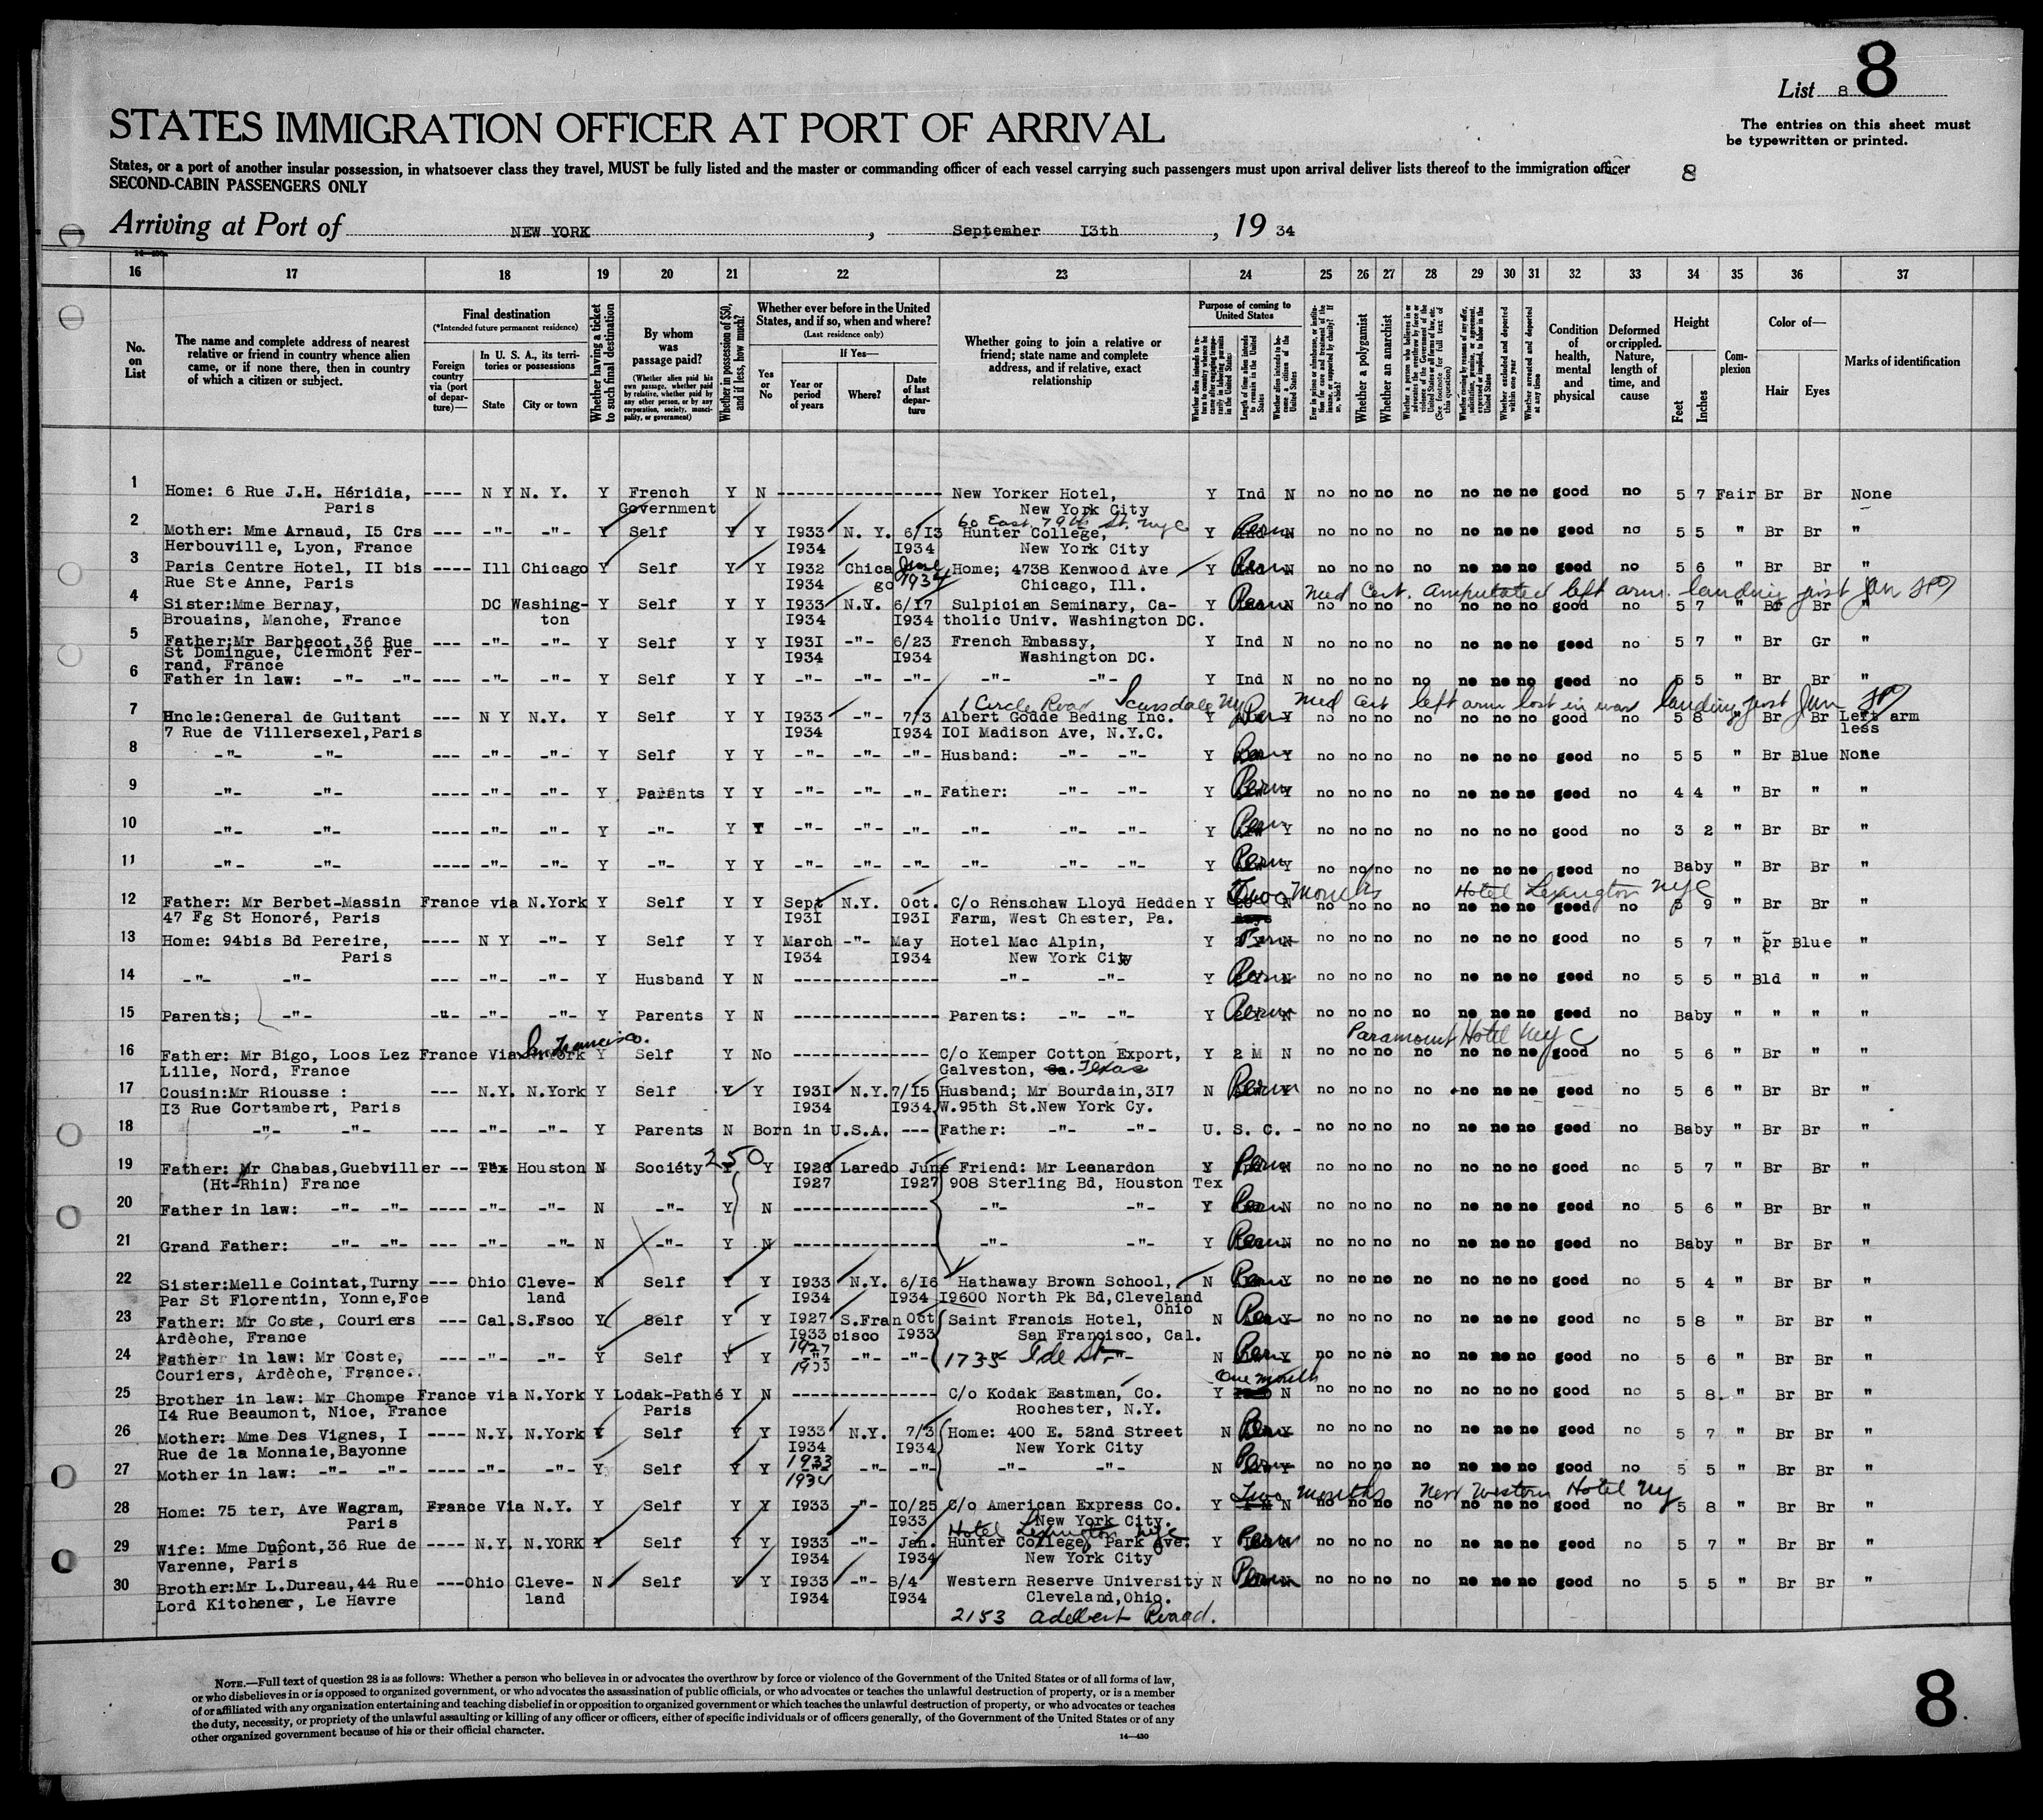 List 8 8
STATES IMMIGRATION OFFICER AT PORT OF ARRIVAL
The entries on this sheet must
be typewritten or printed.
States, or a port of another insular possession, in whatsoever class they travel, MUST be fully listed and the master or commanding officer of each vessel carrying such passengers must upon arrival deliver lists thereof to the immigration officer
8
SECOND-CABIN PASSENGERS ONLY
Arriving at Port of NEW YORK, September I3th, 19 34
16 17 18 19 20 21 22 23 24 25 26 27 28 29 30 31 32 33 34 35 36 37
No. on List
The name and complete address of nearest relative or friend in country whence alien came, or if none there, then in country of which a citizen or subject.
Final destination
(*Intended future permanent residence)
Foreign country via (port of departure)—
In U. S. A., its territories or possessions
State
City or town
Whether having a ticket to such final destination
By whom was passage paid?
(Whether alien paid his own passage, whether paid by relative, whether paid by any other person, or by any corporation, society, municipality, or government)
Whether in possession of $50, and if less, how much?
Whether ever before in the United States, and if so, when and where?
(Last residence only)
Yes or No
If Yes—
Year or period of years
Where?
Date of last departure
Whether going to join a relative or friend; state name and complete address, and if relative, exact relationship
Purpose of coming to United States
Length of time alien intends to remain in the United States
Whether alien intends to become a citizen of the United States
Whether a polygamist
Whether an anarchist
Whether excluded and deported within one year
Whether arrested and deported at any time
Condition of health, mental and physical
Deformed or crippled. Nature, length of time, and cause
Height
Feet
Inches
Complexion
Color of—
Hair
Eyes
Marks of identification
1 Home: 6 Rue J.H. Héridia, ---- N Y N. Y. Y French Y N ------------------ New Yorker Hotel, Y Ind N no no no no no no no good no 5 7 Fair Br Br None
Paris Government New York City
60 East 79th St. NYC
2 Mother: Mme Arnaud, I5 Crs --- -"- -"- Y Self Y Y I933 N. Y. 6/I3 Hunter College, Y Perm N no no no no no no no good no 5 5 " Br Br "
Herbouville, Lyon, France I934 I934 New York City
3 Paris Centre Hotel, II bis ---- Ill Chicago Y Self Y Y I932 Chica June Home; 4738 Kenwood Ave Y Perm N no no no no no no no good no 5 6 " Br Br "
Rue Ste Anne, Paris I934 go 1934 Chicago, Ill.
Med Cert. amputated left arm.
4 Sister:Mme Bernay, DC Washing- Y Self Y Y I933 N.Y. 6/I7 Sulpician Seminary, Ca- Y Perm N no no no no no no no good no 5 7 " Br Br "
Brouains, Manche, France ton I934 I934 tholic Univ. Washington DC.
5 Father:Mr Barbecot,36 Rue --- -"- -"- Y Self Y Y I93I -"- 6/23 French Embassy, Y Ind N no no no no no no no good no 5 7 " Br Gr "
St Domingue, Clermont Fer- I934 I934 Washington DC.
rand, France
6 Father in law: -"- -"- --- -"- -"- Y Self Y Y -"- -"- -"- -"- -"- Y Ind N no no no no no no no good no 5 5 " Br Br "
1 Circle Road Scarsdale NY Med Cert left arm lost in war
7 Uncle:General de Guitant --- N Y N.Y. Y Self Y Y I933 -"- 7/3 Albert Godde Beding Inc. Y Perm no no no no no no no good no 5 8 " Br Br Left arm
7 Rue de Villersexel,Paris I934 I934 I0I Madison Ave, N.Y.C. less
8 -"- -"- --- -"- -"- Y Self Y Y -"- -"- -"- Husband: -"- -"- Y Perm Y no no no no no no no good no 5 5 " Br Blue None
9 -"- -"- ---- -"- -"- Y Parents Y Y -"- -"- -"- Father: -"- -"- Y Perm Y no no no no no no no good no 4 4 " Br " "
10 -"- -"- ---- -"- -"- Y -"- Y Y -"- -"- -"- -"- -"- -"- Y Perm Y no no no no no no no good no 3 2 " Br Br "
11 -"- -"- ---- -"- -"- Y -"- Y Y -"- -"- -"- -"- -"- -"- Y Perm Y no no no no no no no good no Baby " Br Br "
Two Months Hotel Lexington NYC
12 Father: Mr Berbet-Massin France via N.York Y Self Y Y Sept N.Y. Oct. C/o Renschaw Lloyd Hedden Y 20 N no no no no no no no good no 5 9 " Br Br "
47 Fg St Honoré, Paris I93I I93I Farm, West Chester, Pa. days
13 Home: 94bis Bd Pereire, ---- N Y -"- Y Self Y Y March -"- May Hotel Mac Alpin, Y Perm N no no no no no no no good no 5 7 " Br Blue "
Paris I934 I934 New York City
14 -"- -"- --- -"- -"- Y Husband Y N --------------- -"- -"- Y Perm N no no no no no no no good no 5 5 " Bld " "
15 Parents; -"- -"- -"- -"- Y Parents Y N --------------- Parents: -"- -"- Y Perm N no no no no no no no good no Baby " " " "
San Francisco. Paramount Hotel NYC
16 Father: Mr Bigo, Loos Lez France Via N.York Y Self Y No -------------- C/o Kemper Cotton Export, Y 2 M N no no no no no no no good no 5 6 " Br " "
Lille, Nord, France Galveston, Ga. Texas
17 Cousin:Mr Riousse : --- N.Y. N.York Y Self Y Y I93I N.Y. 7/I5 Husband; Mr Bourdain,3I7 N Perm no no no no no no no good no 5 6 " Br Br "
I3 Rue Cortambert, Paris I934 I934 W.95th St.New York Cy.
18 -"- -"- --- -"- -"- Y Parents N Born in U.S.A. --- Father: -"- -"- U. S. C. - no no no no no no no good no Baby " Br Br "
19 Father: Mr Chabas,Guebviller -- Tex Houston N Société 250 Y Y I926 Laredo June Friend: Mr Leanardon Y Perm N no no no no no no no good no 5 7 " Br Br "
(Ht-Rhin) France I927 I927 908 Sterling Bd, Houston Tex
20 Father in law: -"- -"- --- -"- -"- N -"- Y N -------------- -"- -"- Y Perm N no no no no no no no good no 5 6 " Br Br "
21 Grand Father: -"- -"- --- -"- -"- N -"- Y N -------------- -"- -"- Y Perm N no no no no no no no good no Baby " Br Br "
22 Sister:Melle Cointat,Turny --- Ohio Cleve- N Self Y Y I933 N.Y. 6/I6 Hathaway Brown School, N Perm Y no no no no no no no good no 5 4 " Br Br "
Par St Florentin, Yonne,Fce land I934 I934 I9600 North Pk Bd,Cleveland
Ohio
23 Father: Mr Coste, Couriers --- Cal. S.Fsco Y Self Y Y I927 S.Fran Oct Saint Francis Hotel, N Perm Y no no no no no no no good no 5 8 " Br Br "
Ardèche, France I933 cisco I933 San Francisco, Cal.
24 Father in law: Mr Coste, --- -"- -"- Y Self Y Y 1927 -"- -"- 1735 -"- N Perm Y no no no no no no no good no 5 6 " Br Br "
Couriers, Ardèche, France.. 1933
One month
25 Brother in law: Mr Chompe France via N.York Y Lodak-Pathé Y N --------------- C/o Kodak Eastman, Co. Y N no no no no no no no good no 5 8. " Br Br "
I4 Rue Beaumont, Nice, France Paris Rochester, N.Y.
26 Mother: Mme Des Vignes, I ---- N.Y. N.York Y Self Y Y I933 N.Y. 7/3 Home: 400 E. 52nd Street N Perm Y no no no no no no no good no 5 7 " Br Br "
Rue de la Monnaie,Bayonne I934 I934 New York City
27 Mother in law: -"- -"- ---- -"- -"- Y Self Y Y 1933 -"- -"- -"- -"- N Perm Y no no no no no no no good no 5 5 " Br Br "
1934
Two months New Western Hotel NY
28 Home: 75 ter, Ave Wagram, France Via N.Y. Y Self Y Y I933 -"- I0/25 C/o American Express Co. Y N no no no no no no no good no 5 8 " Br Br "
Paris I933 New York City.
Hotel Lexington NYC
29 Wife: Mme Dupont,36 Rue de ---- N.Y. N.YORK Y Self Y Y I933 -"- Jan. Hunter College, Park Ave. Y Perm no no no no no no no good no 5 7 " Br Br "
Varenne, Paris I934 I934 New York City
30 Brother:Mr L.Dureau,44 Rue --- Ohio Cleve- N Self Y Y I933 -"- 8/4 Western Reserve University N Perm no no no no no no no good no 5 5 " Br Br "
Lord Kitchener, Le Havre land I934 I934 Cleveland,Ohio.
2153 Adelbert Road.
NOTE.—Full text of question 28 is as follows: Whether a person who believes in or advocates the overthrow by force or violence of the Government of the United States or of all forms of law,
or who disbelieves in or is opposed to organized government, or who advocates the assassination of public officials, or who advocates or teaches the unlawful destruction of property, or is a member
of or affiliated with any organization entertaining and teaching disbelief in or opposition to organized government or which teaches the unlawful destruction of property, or who advocates or teaches
the duty, necessity, or propriety of the unlawful assaulting or killing of any officer or officers, either of specific individuals or of officers generally, of the Government of the United States or of any
other organized government because of his or their official character.
14—430
8